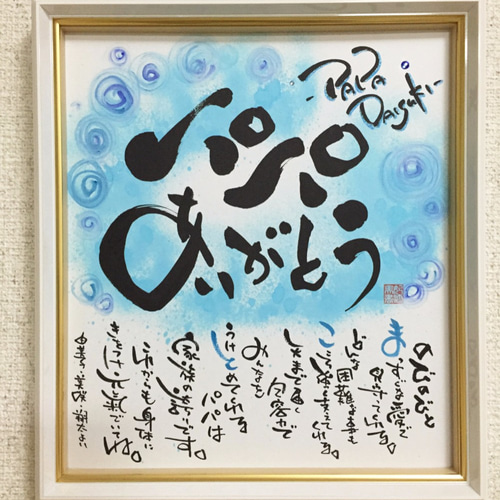 -PAPA
Daisuki-
パパ
ありがとう
のびのびと
まっすぐな愛で
見守ってくれる。
どんな困難な事も
こころ強く支えてくれる。
包容力で
みんなを
うけとめてくれる
パパは
家族の
です。
これからも身体に
きをつけて元気でいてね。
より